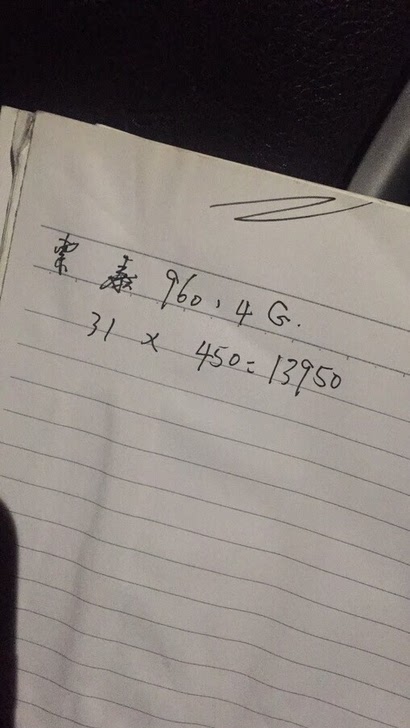 960, 4G.
31 × 450=13950